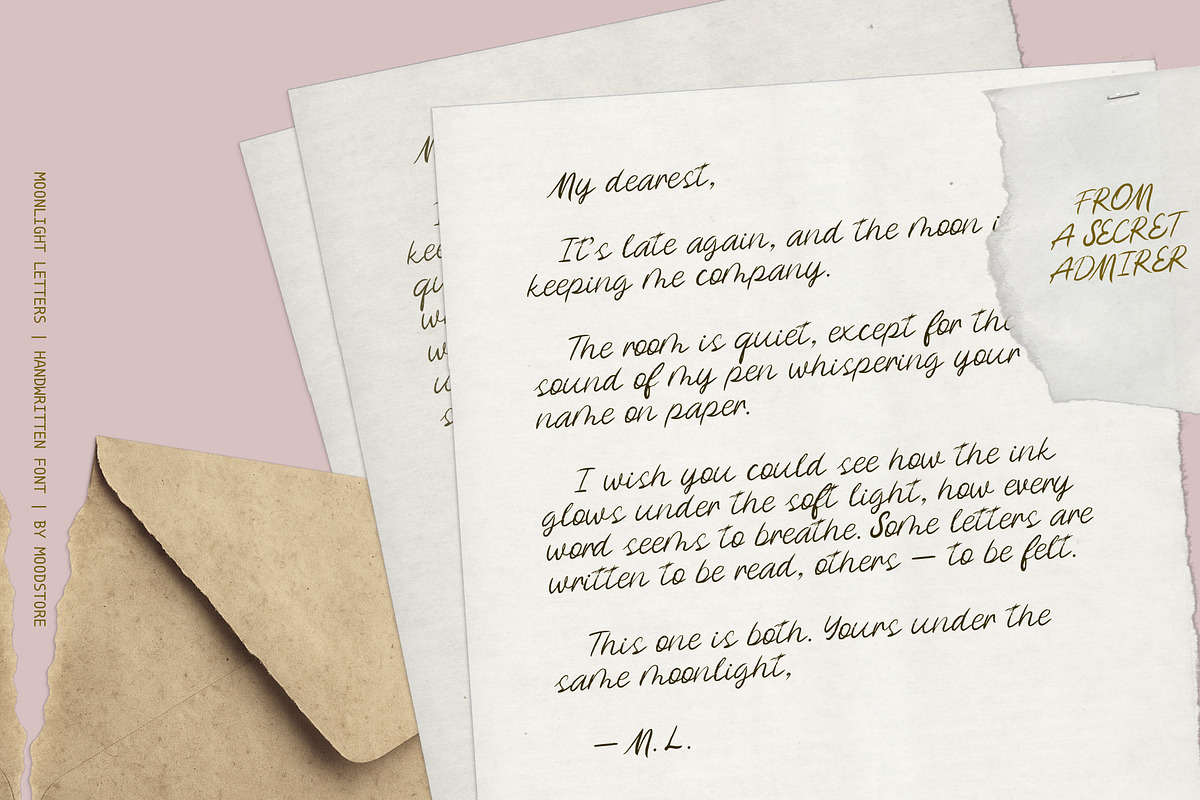 MOONLIGHT LETTERS | HANDWRITTEN FONT | BY MOODSTORE
My dearest,
It's late again, and the moon
keeping me company.
The room is quiet, except for the
sound of my pen whispering your
name on paper.
I wish you could see how the ink
glows under the soft light, how every
word seems to breathe. Some letters are
written to be read, others — to be felt.
This one is both. Yours under the
same moonlight,
— M. L.
FROM
A SECRET
ADMIRER